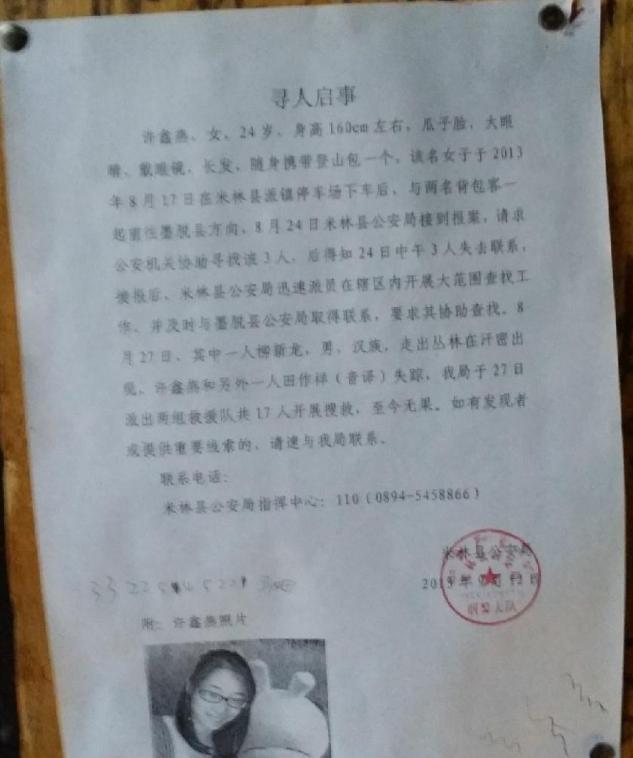 寻人启事
许鑫燕、女、24岁、身高160cm左右,瓜子脸,大眼
睛、戴眼镜,长发,随身携带登山包一个,该名女子于2013
年8月17日在米林县派镇停车场下车后,与两名背包客一
起前往墨脱县方向,8月24日米林县公安局接到报案,请求
公安机关协助寻找该3人,后得知24日中午3人失去联系,
接报后、米林县公安局迅速派员在辖区内开展大范围查找工
作、并及时与墨脱县公安局取得联系,要求其协助查找。8
月27日、其中一人柳新龙,男、汉族,走出丛林在汗密出
现、许鑫燕和另外一人田作祥(音译)失踪,我局于27日
派出两组救援队共17人开展搜救,至今无果。如有发现者
或提供重要线索的、请速与我局联系。
联系电话:
米林县公安局指挥中心:110(0894-5458866)
米林县公安局
2013年 月12日
刑警大队
附:许鑫燕照片